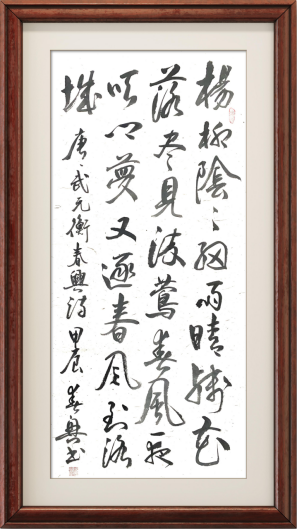 楊柳陰〻細雨晴殘花
落尽見流鶯春風一夜
吹鄉夢又逐春風到洛
城 唐〻武元衡春興詩 甲辰 書